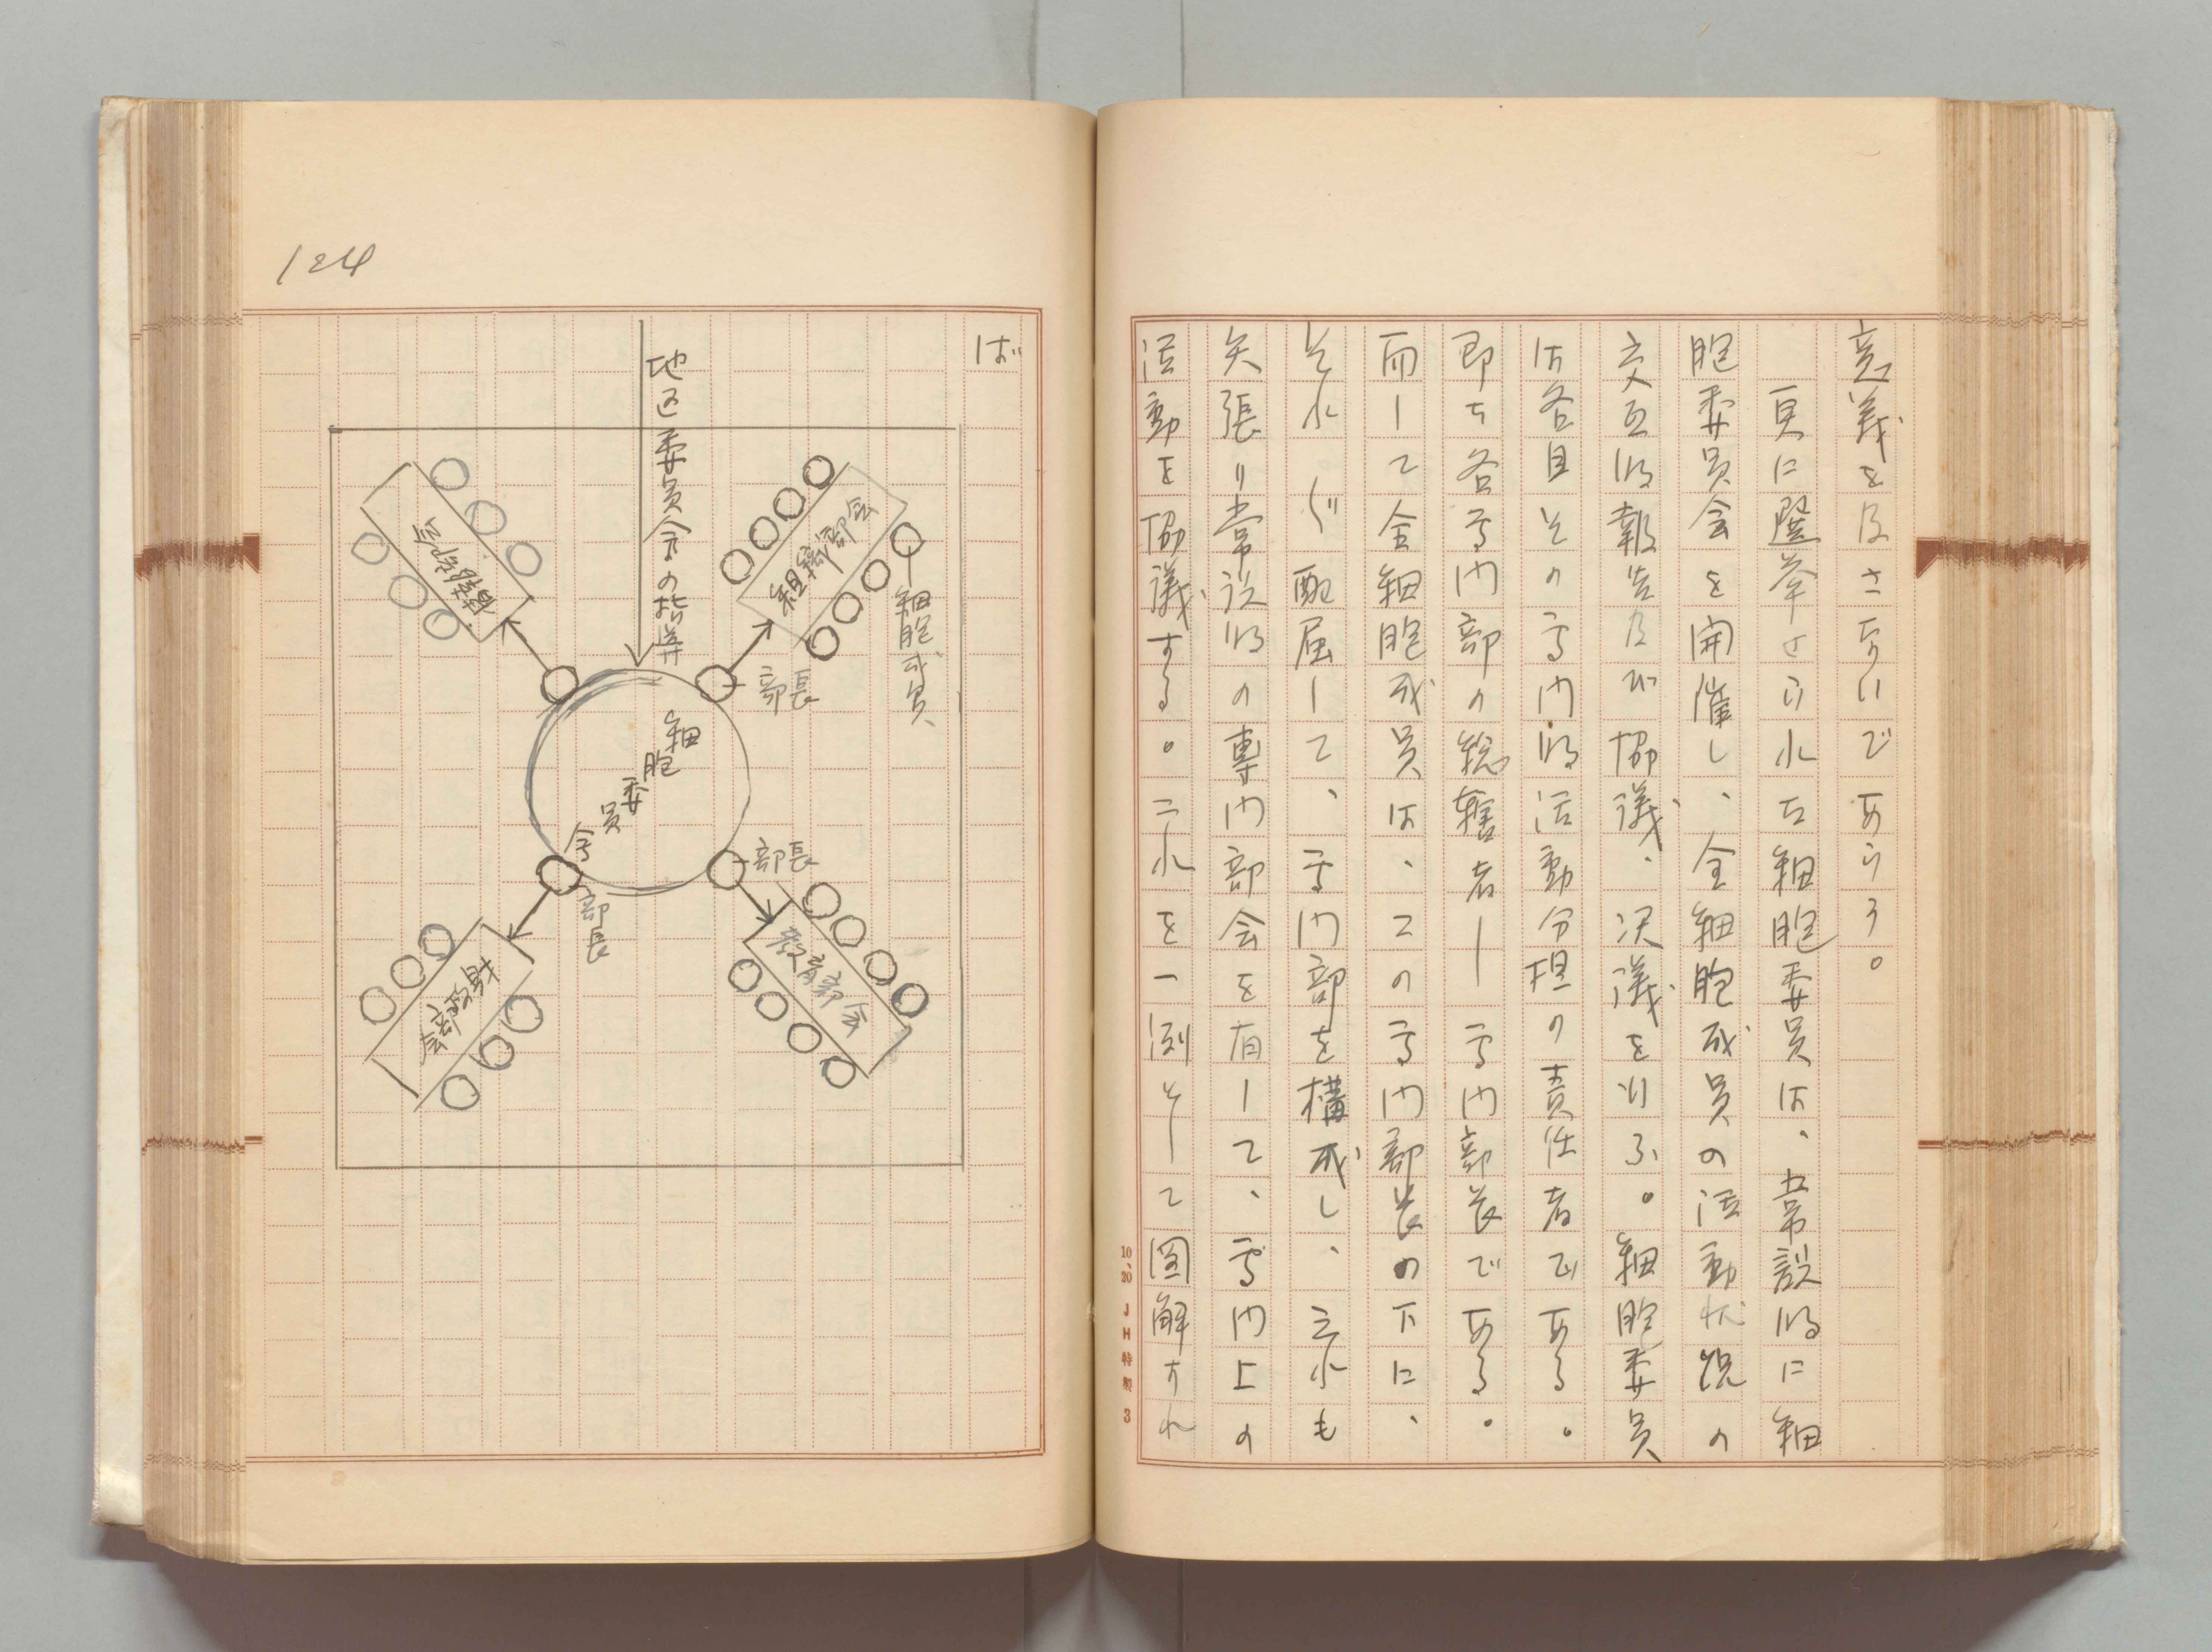 意義を及さないであらう。
更に選挙せられた細胞委員は、常設的に細
胞委員会を開催し、全細胞成員の活動状況の
交互的報告及び協議、決議を行ふ。細胞委員
は各自その専門的活動分担の責任者である。
即ち各専門部の総轄者―専門部長である。
而して全細胞成員は、この専門部長の下に、
それ〲配属して、専門部を構成し、之れも
矢張り常設的の専門部会を有して、専門上の
活動を協議する。これを一例として図解すれ
10、20 JH特製 3
124
ば
地区委員会の指導
細胞成員
組織部会
部長
細胞委員会
部長
教育部会
部長
財政部会